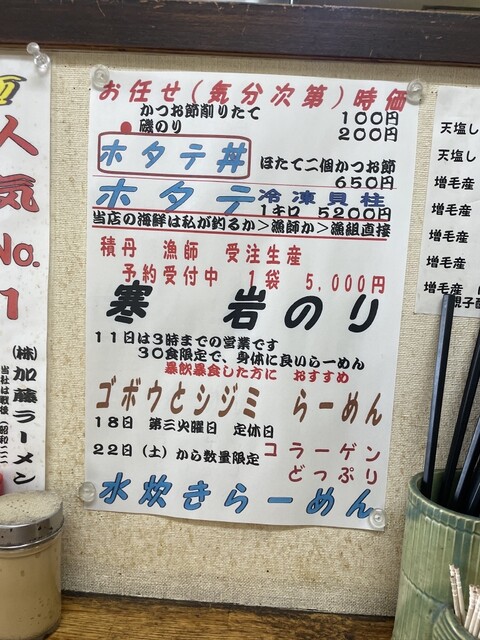 お任せ(気分次第)時価
かつお節削りたて 100円
磯のり 200円
ホタテ丼 ほたて二個かつお節
650円
ホタテ 冷凍貝柱
1キロ 5200円
当店の海鮮は私が釣るか>漁師か>漁組直接
積丹 漁師 受注生産
予約受付中 1袋 5,000円
寒 岩のり
11日は3時までの営業です
30食限定で、身体に良いらーめん
暴飲暴食した方に おすすめ
ゴボウとシジミ らーめん
18日 第三火曜日 定休日
22日(土)から数量限定 コラーゲン
どっぷり
水炊きらーめん
人気No.1
(株)加藤ラーメン
当社は戦後(昭和二二
天塩し
天塩し
増毛産
増毛産
増毛産
増毛産
増毛産
親子